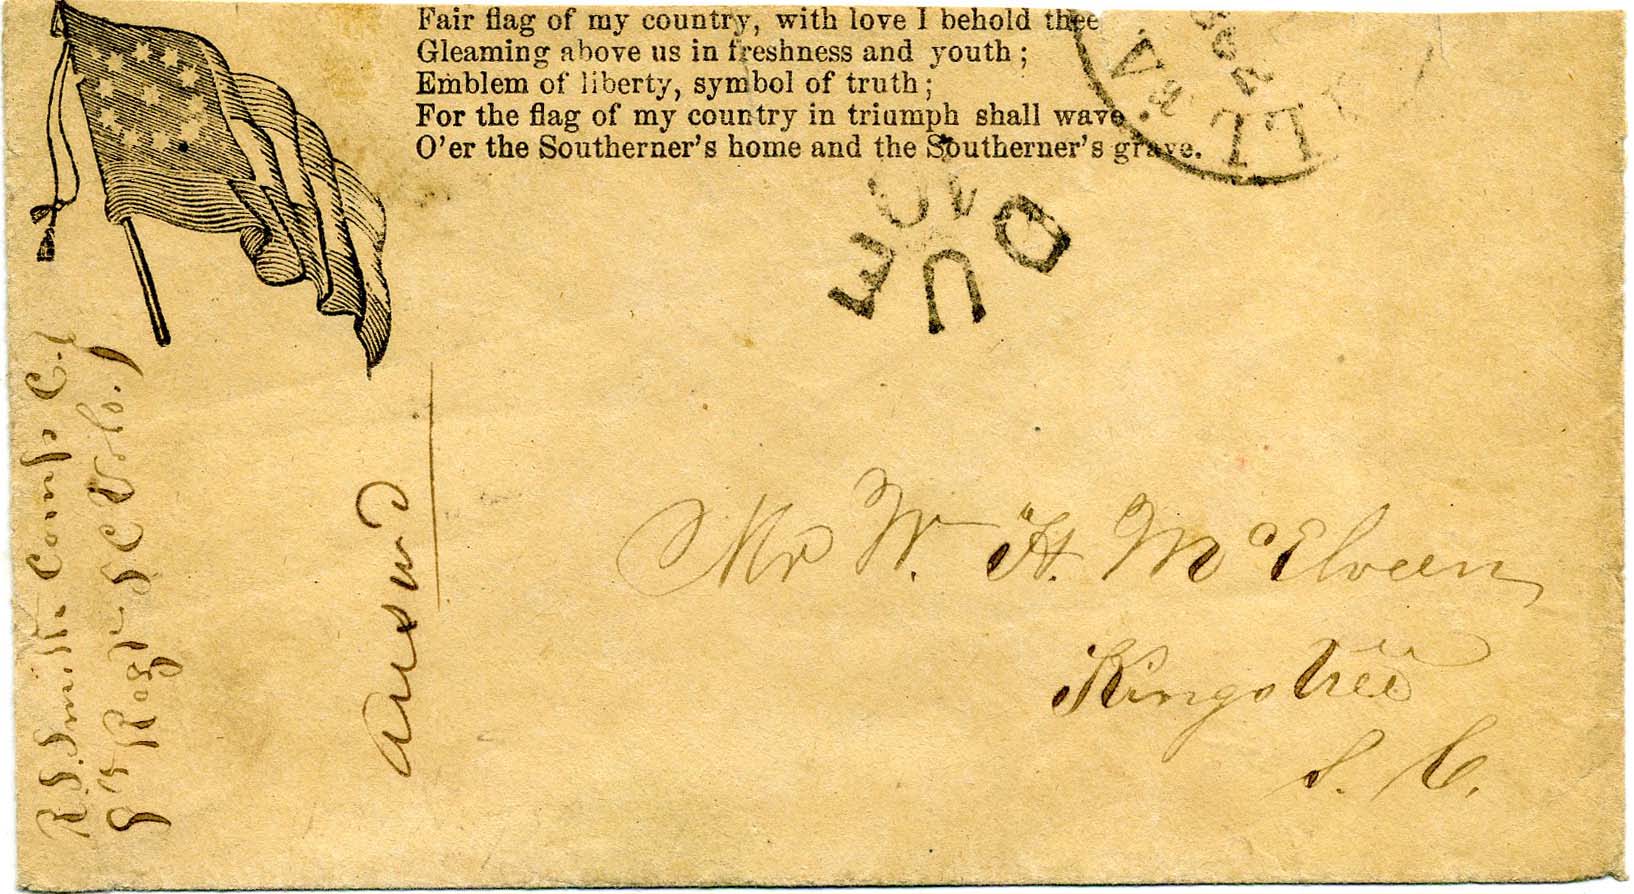 Fair flag of my country, with love I behold thee
Gleaming above us in freshness and youth ;
Emblem of liberty, symbol of truth ;
For the flag of my country in triumph shall wave
O'er the Southerner's home and the Southerner's grave.
VA.
DUE 10
Mr W. H. McElveen
Kingstree
S. C.
R. S. Smith Comp C.
8th Regt S C Vols.